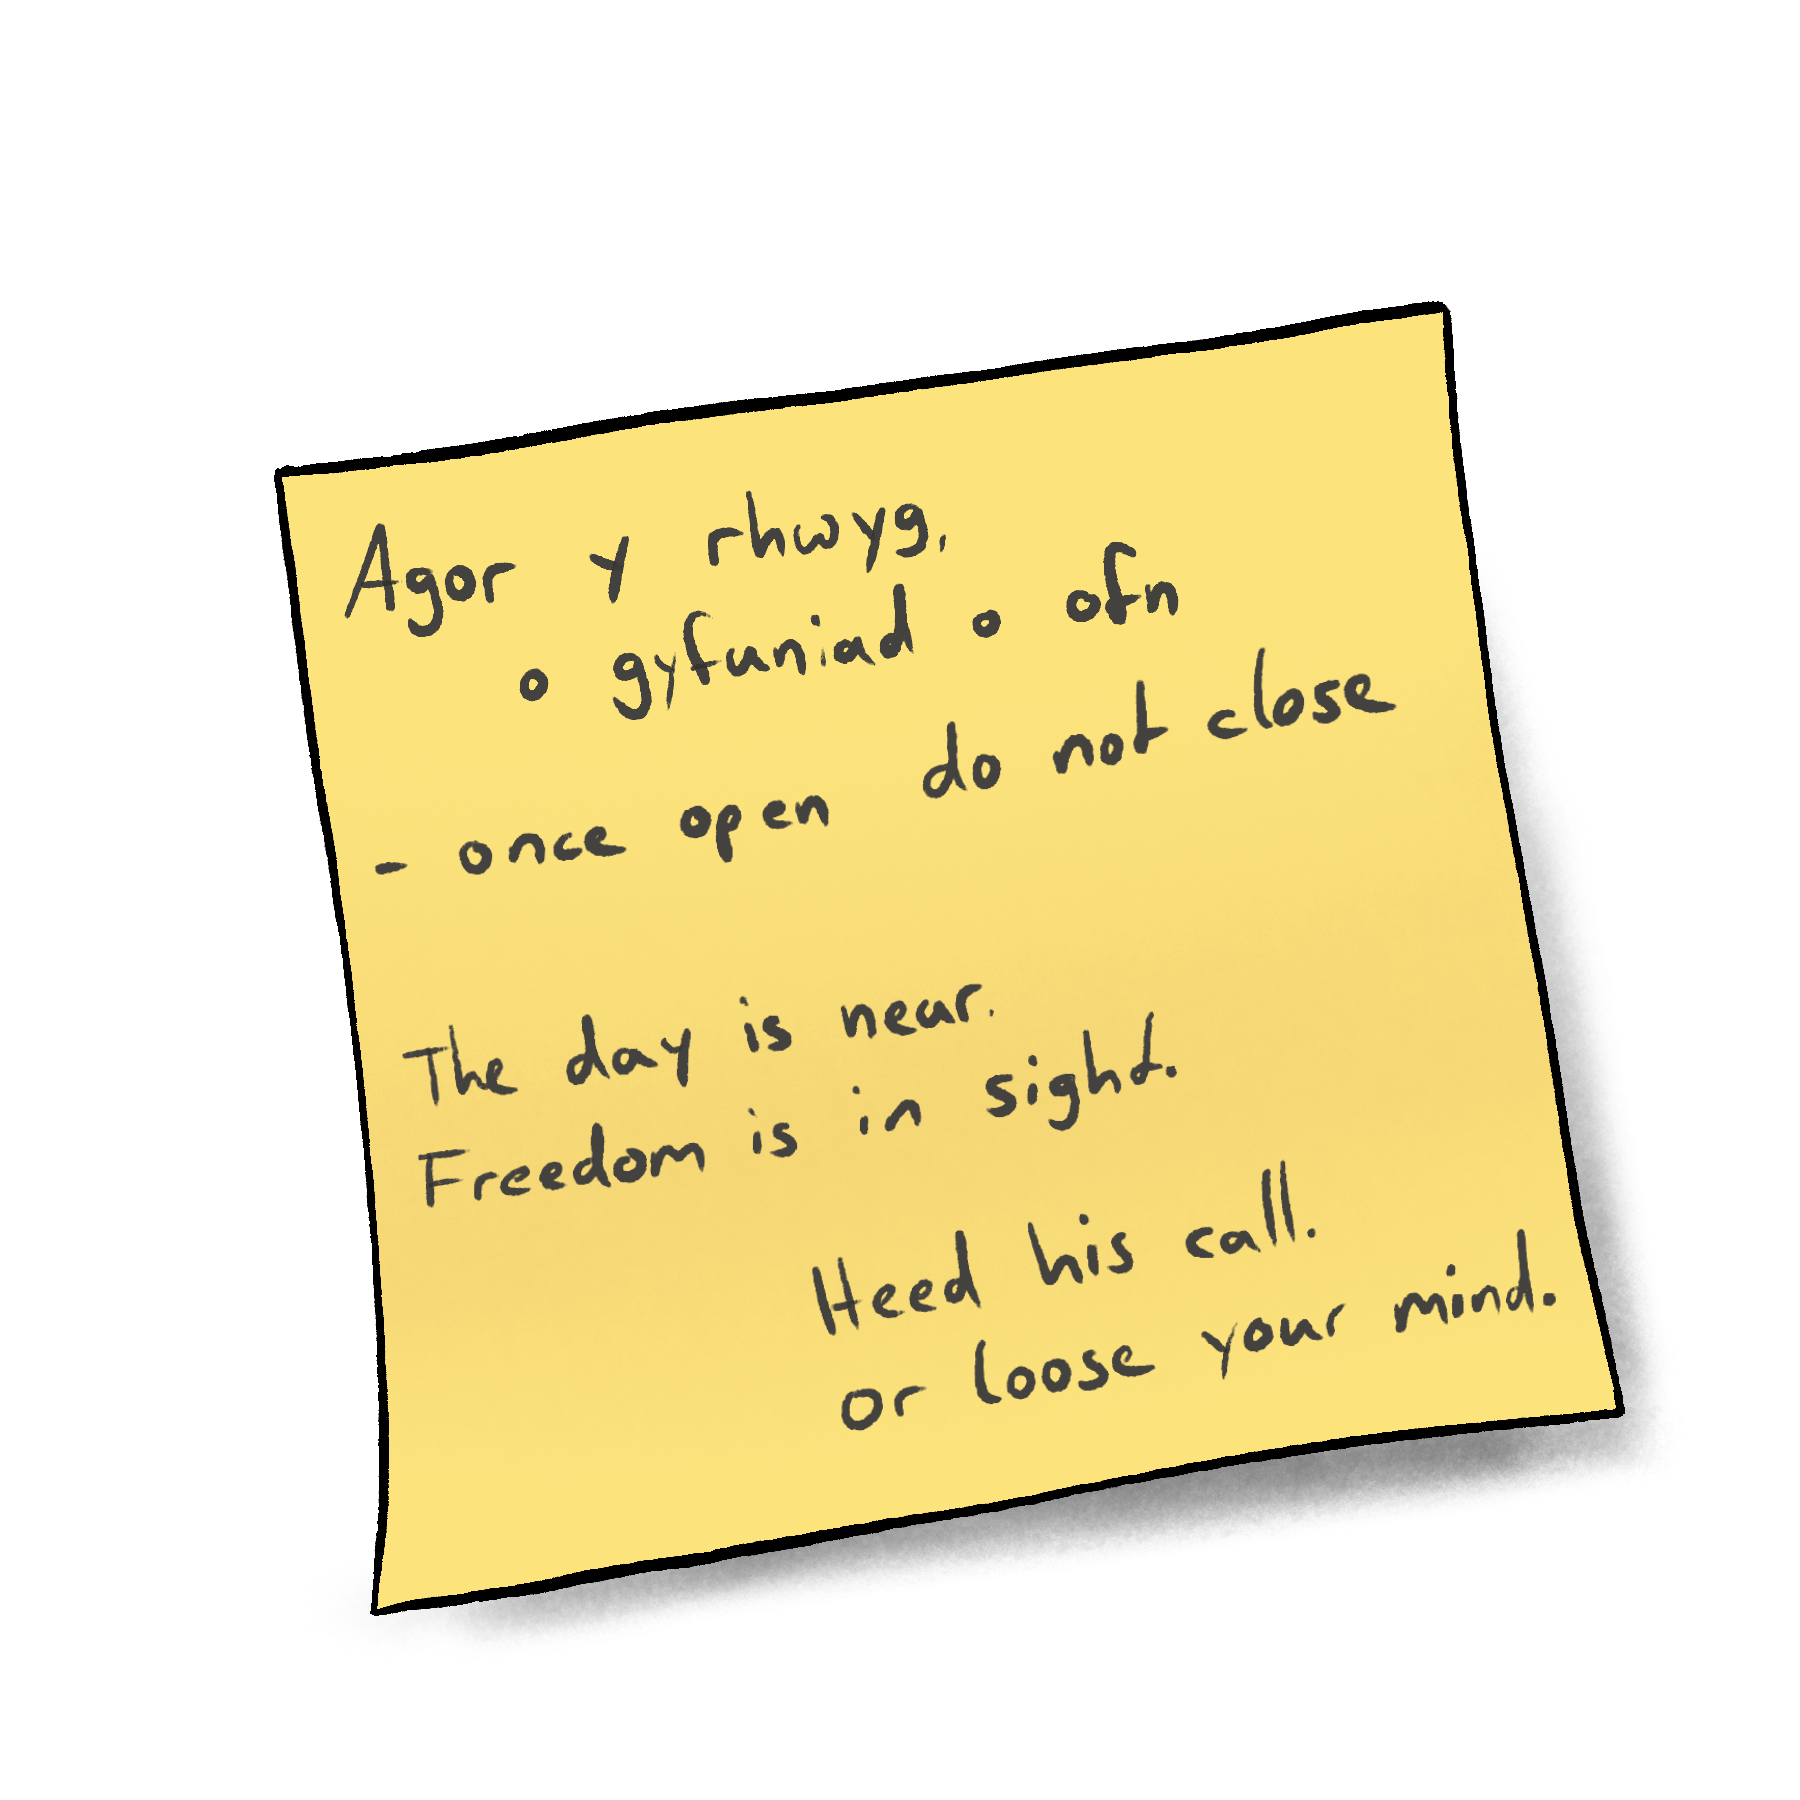 Agor y rhwyg,
o gyfuniad o ofn
- once open do not close
The day is near.
Freedom is in sight.
Heed his call.
or loose your mind.